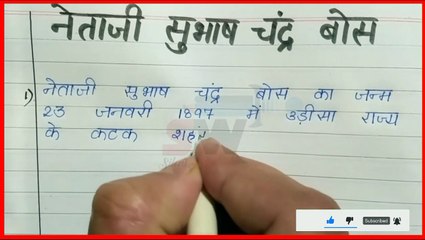 नेताजी सुभाष चंद्र बोस
1) नेताजी सुभाष चंद्र बोस का जन्म
23 जनवरी 1897 में उड़ीसा राज्य
के कटक शह
Subscribed